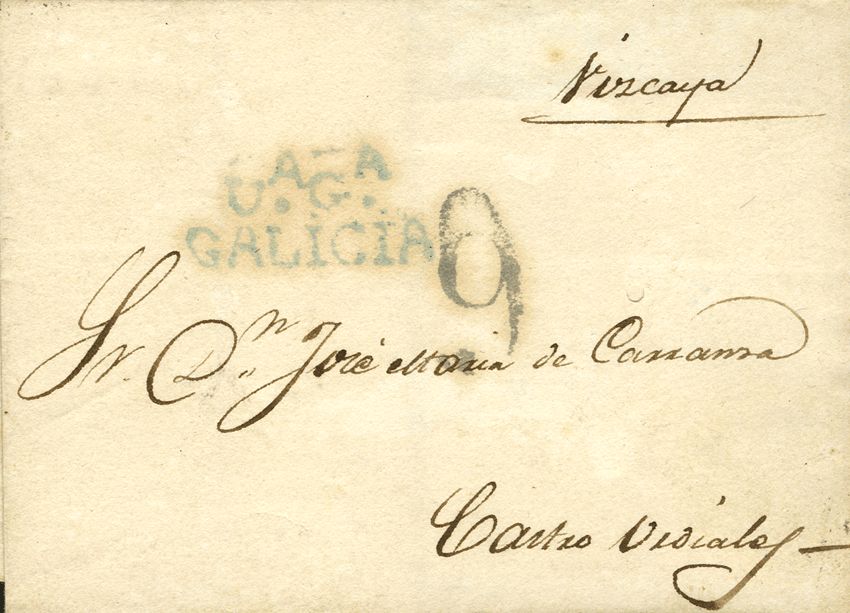 Vizcaya
U.ᴬG.ᴬ
GALICIA
9
Sr. D.ⁿ José Maria de Carranza
Castro Urdiales